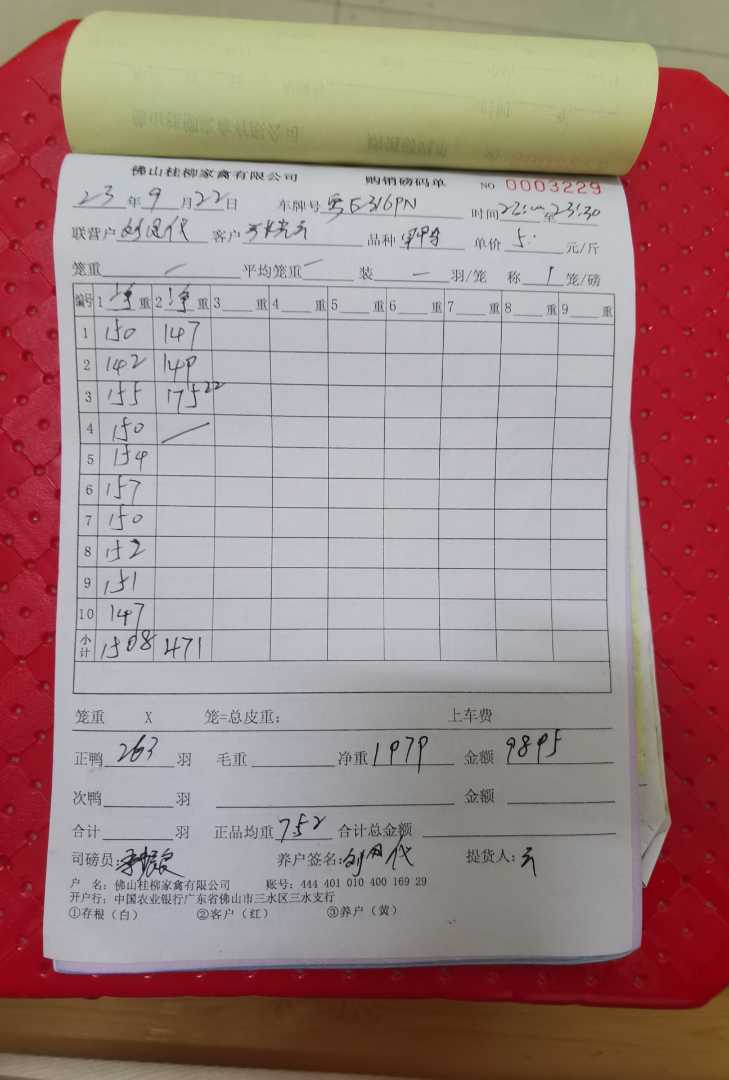 佛山桂柳家禽有限公司 购销磅码单 NO 0003229
23年9月22日 车牌号 粤E316PN 时间22:00至23:30
联营户 客户 品种 单价 5. 元/斤
笼重 — 平均笼重 — 装 — 羽/笼 称 1 笼/磅
编号 1 净 重 2 净 重 3 重 4 重 5 重 6 重 7 重 8 重 9 重
1 150 147
2 142 149
3 155 175 22
4 150 —
5 154
6 157
7 150
8 152
9 151
10 147
小计 1508 471
笼重 X 笼=总皮重: 上车费
正鸭 263 羽 毛重 净重 1979 金额 9895
次鸭 羽 金额
合计 羽 正品均重 752 合计总金额
司磅员: 养户签名: 提货人:
户 名: 佛山桂柳家禽有限公司 账号: 444 401 010 400 169 29
开户行: 中国农业银行广东省佛山市三水区三水支行
①存根(白) ②客户(红) ③养户(黄)